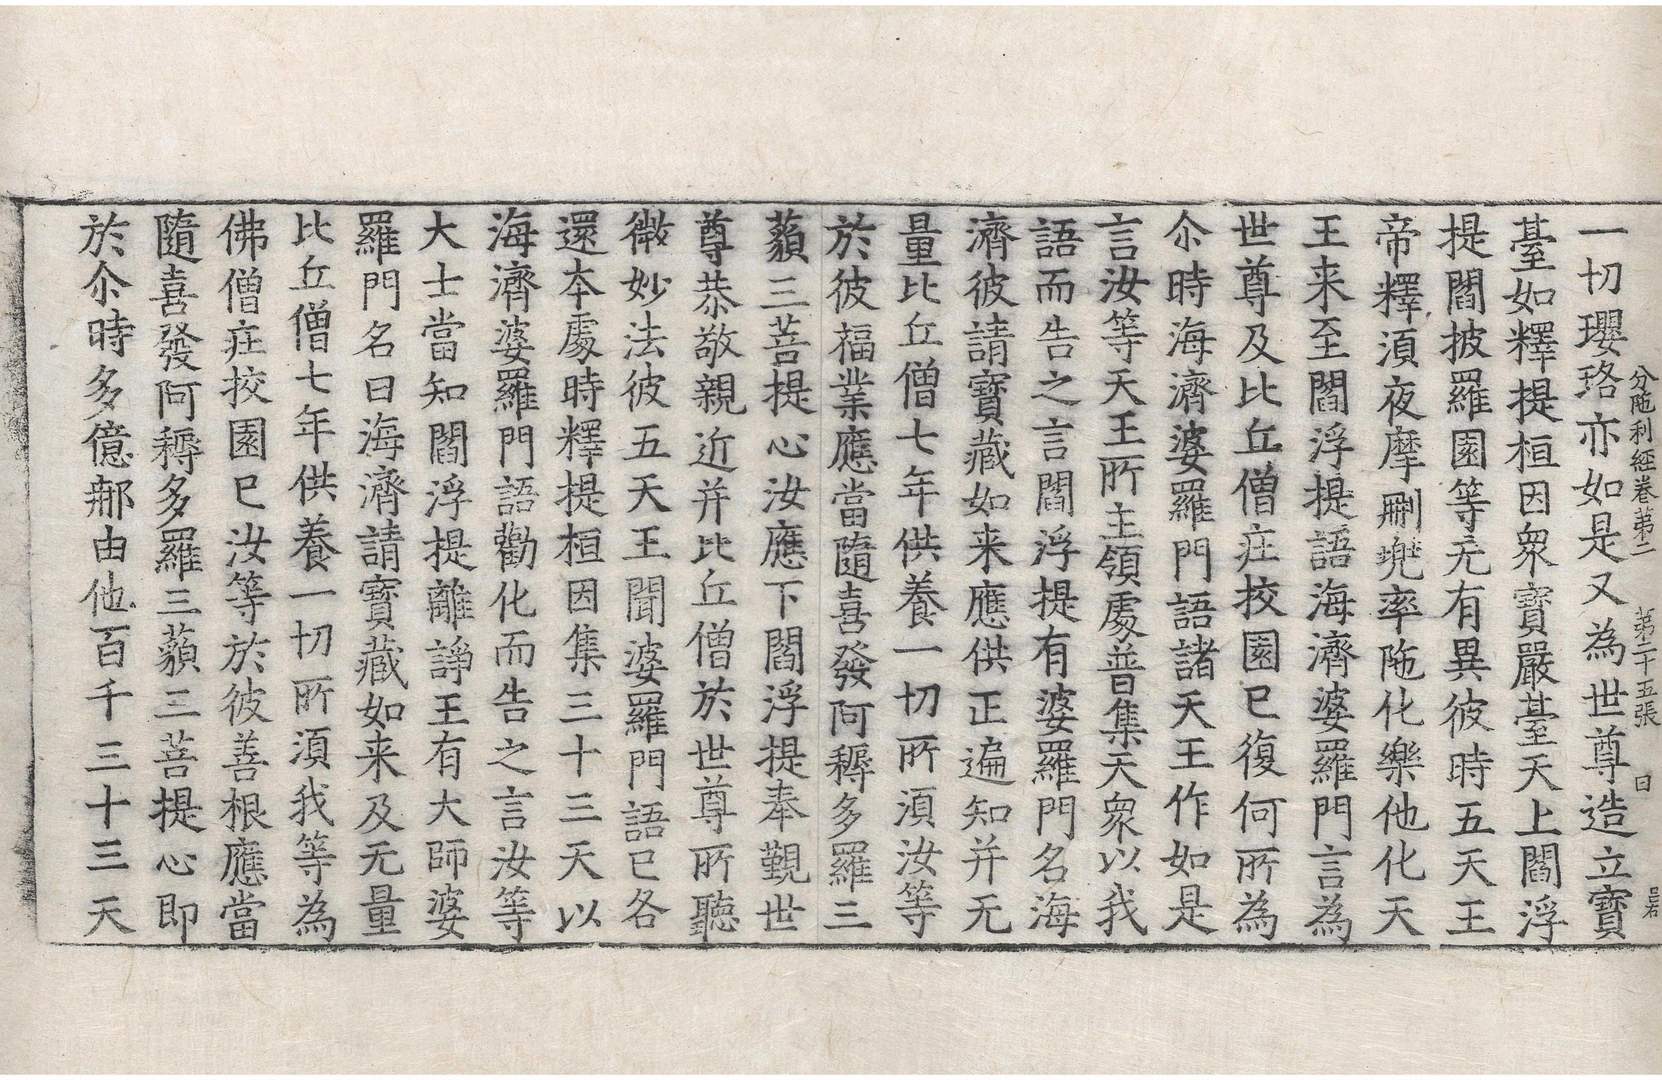 分陁利經卷第二　第二十五張　日
一切瓔珞亦如是又為世尊造立寶
臺如釋提桓因眾寶嚴臺天上閻浮
提閻披羅園等无有異彼時五天王
帝釋湏夜摩刪兜率陁化樂他化天
王来至閻浮提語海濟婆羅門言為
世尊及比丘僧㽵挍園已復何所為
尒時海濟婆羅門語諸天王作如是
言汝等天王所主領處普集天眾以我
語而告之言閻浮提有婆羅門名海
濟彼請寶藏如来應供正遍知并无
量比丘僧七年供養一切所湏汝等
於彼福業應當隨喜發阿耨多羅三
藐三菩提心汝應下閻浮提奉覲世
尊恭敬親近并比丘僧於世尊所聽
微妙法彼五天王聞婆羅門語已各
還本處時釋提桓因集三十三天以
海濟婆羅門語勸化而告之言汝等
大士當知閻浮提離諍王有大師婆
羅門名曰海濟請寶藏如来及无量
比丘僧七年供養一切所湏我等為
佛僧㽵挍園已汝等於彼善根應當
隨喜發阿耨多羅三藐三菩提心即
於尒時多億那由他百千三十三天